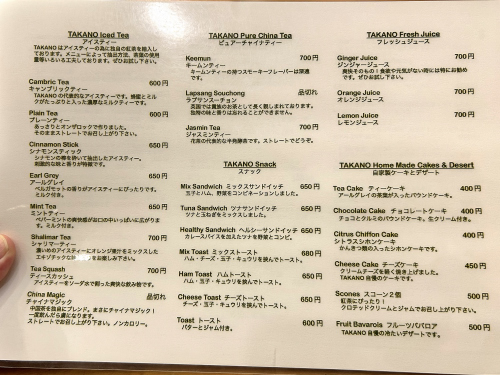 TAKANO Iced Tea
アイスティー
TAKANO はアイスティーの為に独自の紅茶を輸入し
ております。メニューによって抽出方法、茶葉の使用
量等いろいろ工夫しております。ぜひお試し下さい。
Cambric Tea 600円
キャンブリックティー
TAKANO の代表的なアイスティーです。蜂蜜とミル
クがたっぷりと入った濃厚なミルクティーです。
Plain Tea 600円
プレーンティー
あっさりとオンザロックで作りました。
そのままストレートでお召し上がり下さい。
Cinnamon Stick 650円
シナモンスティック
シナモンの棒を砕いて抽出したアイスティー。
刺激的な味と香りが特徴です。
Earl Grey 650円
アールグレイ
ベルガモットの香りがアイスティーにぴったりです。
ミルク付き。
Mint Tea 650円
ミントティー
ペパーミントの爽快感がお口の中いっぱいに広がりま
す。ミルク付き。
Shalimar Tea 700円
シャリマーティー
濃いめのアイスティーにオレンジ果汁をミックスした
エキゾチックな をお楽しみ下さい。
Tea Squash 700円
ティースカッシュ
アイスティーをソーダ水で割った爽快な飲み物です。
China Magic 品切れ
チャイナマジック
中国茶を独自にブレンド。まさにチャイナマジック!
一度飲んだら虜になります。
ストレートでお召し上がり下さい。ノンカロリー。
TAKANO Pure China Tea
ピュアーチャイナティー
Keemun 700円
キームンティー
キームンティーの持つスモーキーフレーバーは深遠
です。
Lapsang Souchong 品切れ
ラプサンスーチョン
英国では貴族のお茶として長く親しまれております。
独特の味と香りは忘れることができません。
Jasmin Tea 700円
ジャスミンティー
花茶の代表的な半発酵茶です。ストレートでどうぞ。
TAKANO Snack
スナック
Mix Sandwich ミックスサンドイッチ 650円
玉子とハム、野菜をコンビネーションしました。
Tuna Sandwich ツナサンドイッチ 650円
ツナと玉ねぎをミックスしました。
Healthy Sandwich ヘルシーサンドイッチ 650円
カレースパイスを加えたツナを野菜とコンビ。
Mix Toast ミックストースト 680円
ハム・チーズ・玉子・キュウリを挟んでトースト。
Ham Toast ハムトースト 650円
ハム・玉子・キュウリを挟んでトースト。
Cheese Toast チーズトースト 650円
チーズ・玉子・キュウリを挟んでトースト。
Toast トースト 600円
バターとジャム付き。
TAKANO Fresh Juice
フレッシュジュース
Ginger Juice 700円
ジンジャージュース
爽快そのもの!食後や元気がない時には特にお勧め
です。ぜひお試し下さい。
Orange Juice 700円
オレンジジュース
Lemon Juice 700円
レモンジュース
TAKANO Home Made Cakes & Desert
自家製ケーキとデザート
Tea Cake ティーケーキ 400円
アールグレイの茶葉が入ったパウンドケーキ。
Chocolate Cake チョコレートケーキ 400円
チョコとクルミのパウンドケーキ。生クリーム付き。
Citrus Chiffon Cake 400円
シトラスシホンケーキ
かんきつ類の入ったシホンケーキです。
Cheese Cake チーズケーキ 450円
クリームチーズを軽く焼き上げました。
TAKANO 自慢のケーキです。
Scones スコーン2個 500円
紅茶にぴったり!
クロテッドクリームとジャムでお召し上がり下さい。
Fruit Bavarois フルーツババロア 500円
TAKANO 自慢の冷たいデザートです。